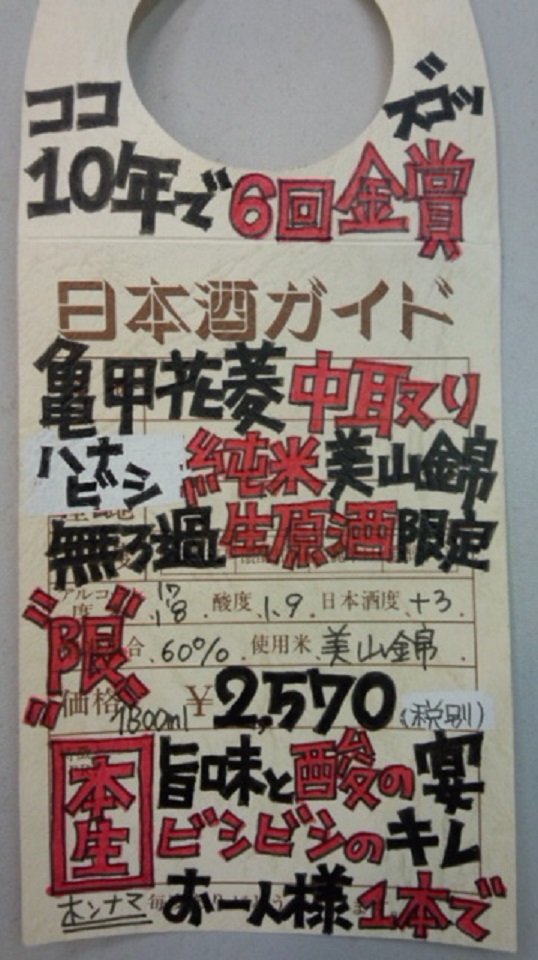 ココ スゴッ
10年で6回金賞
日本酒ガイド
亀甲花菱 中取り
ハナビシ 純米 美山錦
無ろ過 生原酒 限定
アルコール度 17 18 酸度 1.9 日本酒度 +3
"限" 合 60% 使用米 美山錦
価格 1800ml ¥2,570 (税別)
本生 旨味と酸の宴
ビシビシのキレ
ホンナマ お一人様1本で